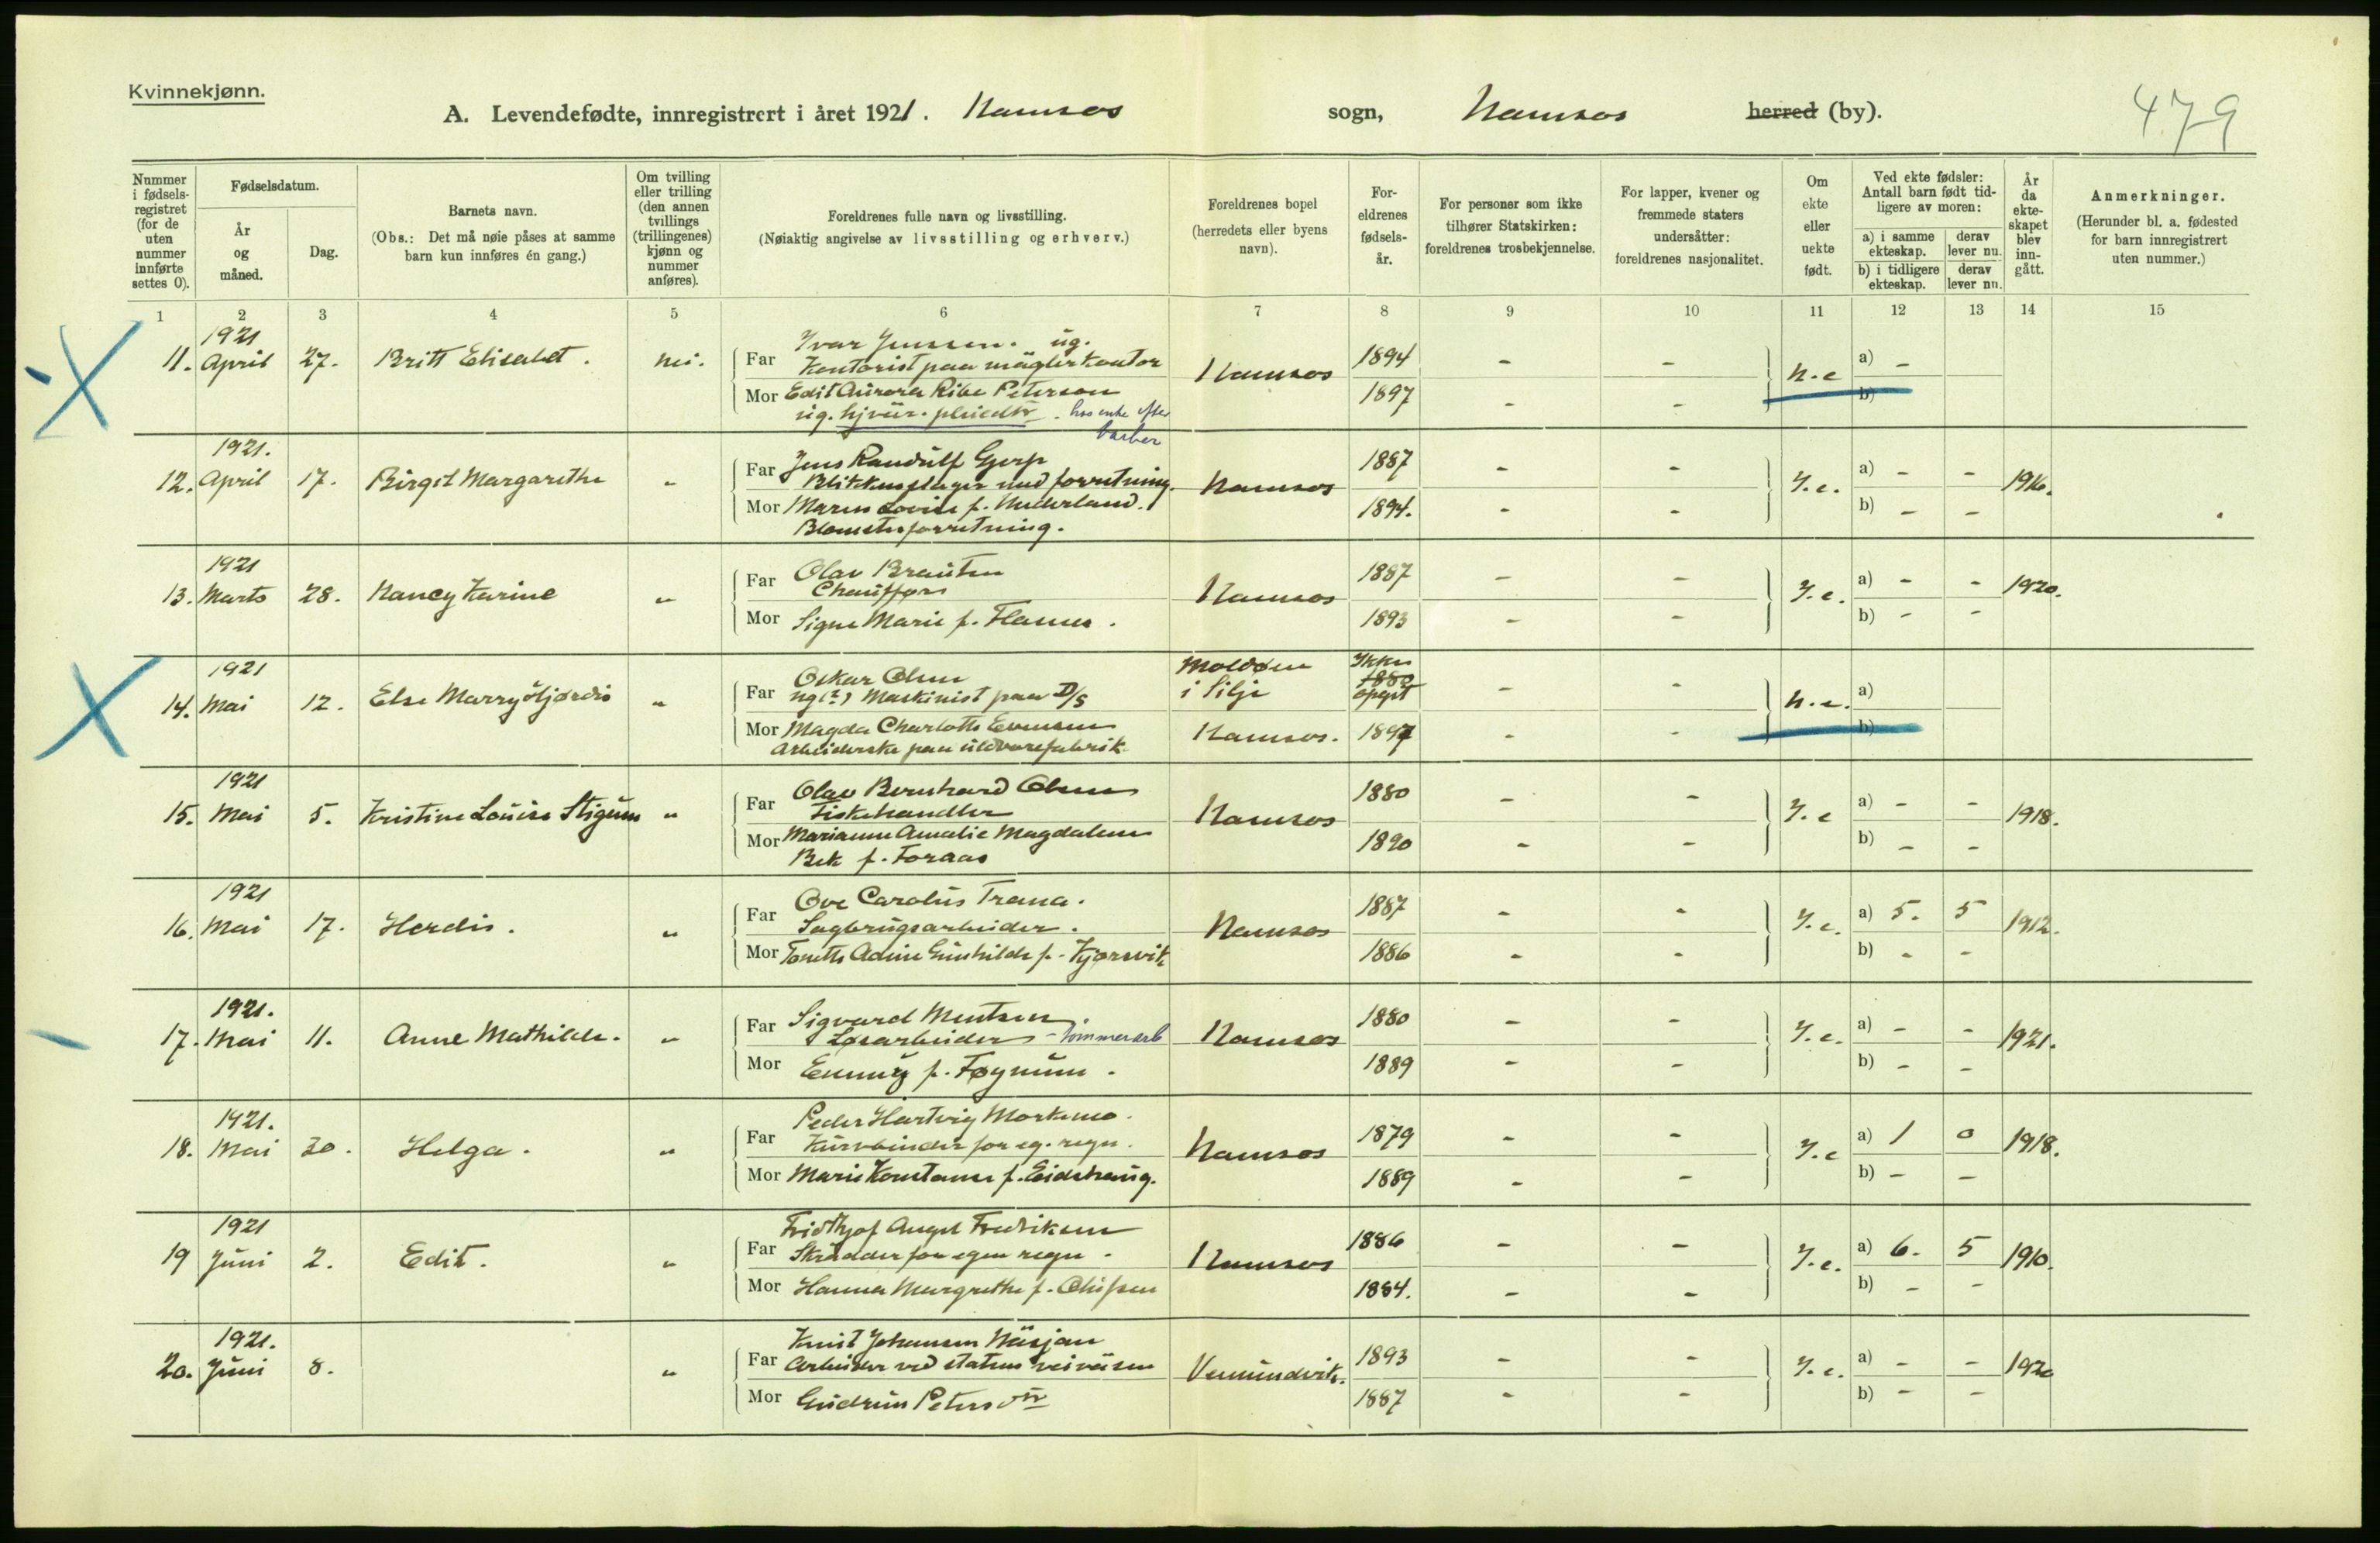 Kvinnekjønn.
A. Levendefødte, innregistrert i året 1921. Namsos sogn, Namsos herred (by).
479
Nummer i fødselsregistret (for de uten nummer innførte settes 0).
Fødselsdatum.
År og måned.
Dag.
Barnets navn.
(Obs.: Det må nøie påses at samme barn kun innføres én gang.)
Om tvilling eller trilling (den annen tvillings (trillingenes) kjønn og nummer anføres).
Foreldrenes fulle navn og livsstilling.
(Nøiaktig angivelse av livsstilling og erhverv.)
Foreldrenes bopel (herredets eller byens navn).
Foreldrenes fødselsår.
For personer som ikke tilhører Statskirken: foreldrenes trosbekjennelse.
For lapper, kvener og fremmede staters undersåtter: foreldrenes nasjonalitet.
Om ekte eller uekte født.
Ved ekte fødsler: Antall barn født tidligere av moren:
a) i samme ekteskap. derav lever nu.
b) i tidligere ekteskap. derav lever nu.
År da ekteskapet blev inngått.
Anmerkninger.
(Herunder bl. a. fødested for barn innregistrert uten nummer.)
1 2 3 4 5 6 7 8 9 10 11 12 13 14 15
1921
11. April 27. Britt Elisabet. nei.
Far Ivar Jenssen. ug.
Kontorist paa mæglerkontor
Namsos 1894 - - u.e a) -
Mor Edit Aurora Ribe Peterson
ug. hos enke efter barber
1897 - - b)
1921.
12. April 17. Birgit Margarethe "
Far Jens Randulf Gjerp
Blikkenslager med forretning.
Namsos 1887 - - Y.e. a) - - 1916.
Mor Maren Lovise f. Nederland.
Blomsterforretning.
1894. - - b) - -
1921
13. Marts 28. Nancy Karine "
Far Olav Brauten
Chauffør
Namsos 1887 - - Y.e. a) - - 1920.
Mor Signe Marie f. Flasnes.
1893 - - b) - -
1921
14. Mai 12. Else Marry Hjørdis "
Far Oskar Olsen
ug (?) Maskinist paa D/S
Moldøen i Silje Ikke 1880 opgit - - u.e. a)
Mor Magda Charlotte Evensen
Arbeiderske paa uldvarefabrik
Namsos. 1897 - - b)
1921
15. Mai 5. Kristine Louise Stigum "
Far Olav Bernhard Olsen
Fiskehandler
Namsos 1880 - - Y.e a) - - 1918.
Mor Marianne Amalie Magdalene
Bek f. Foraas
1890 - - b) - -
1921
16. Mai 17. Herdis. "
Far Ove Carolus Trana.
Sagbrugsarbeider.
Namsos 1887 - - Y.e. a) 5. 5 1912.
Mor Tonette Adine Gunhilde f. Kjørsvik
1886 - - b) - -
1921.
17. Mai 11. Anne Mathilde. "
Far Sigvard Mentsen.
Løsarbeider - tommerarb
Namsos 1880 - - Y.e. a) - - 1921.
Mor Emmy f. Føynum.
1889 - - b) - -
1921.
18. Mai 30. Helga. "
Far Peder Hartvig Morkemo.
Kurvbinder for eg. regn.
Namsos 1879 - - Y.e a) 1 0 1918.
Mor Marie Konstanse f. Eidshaug.
1889 - - b) - -
1921
19 Juni 2. Edit. "
Far Fridthjof Angel Fredriksen
Skrædder for egen regn.
Namsos 1886 - - Y.e. a) 6. 5 1910.
Mor Hanna Margrethe f. Olufsen
1884. - - b) - -
1921.
20. Juni 8. "
Far Knut Johansen Næsjan
Arbeider ved statens veivæsen
Vemundvik. 1893 - - Y.e. a) - - 1920
Mor Gudrun Petersdtr
1887 - - b) - -